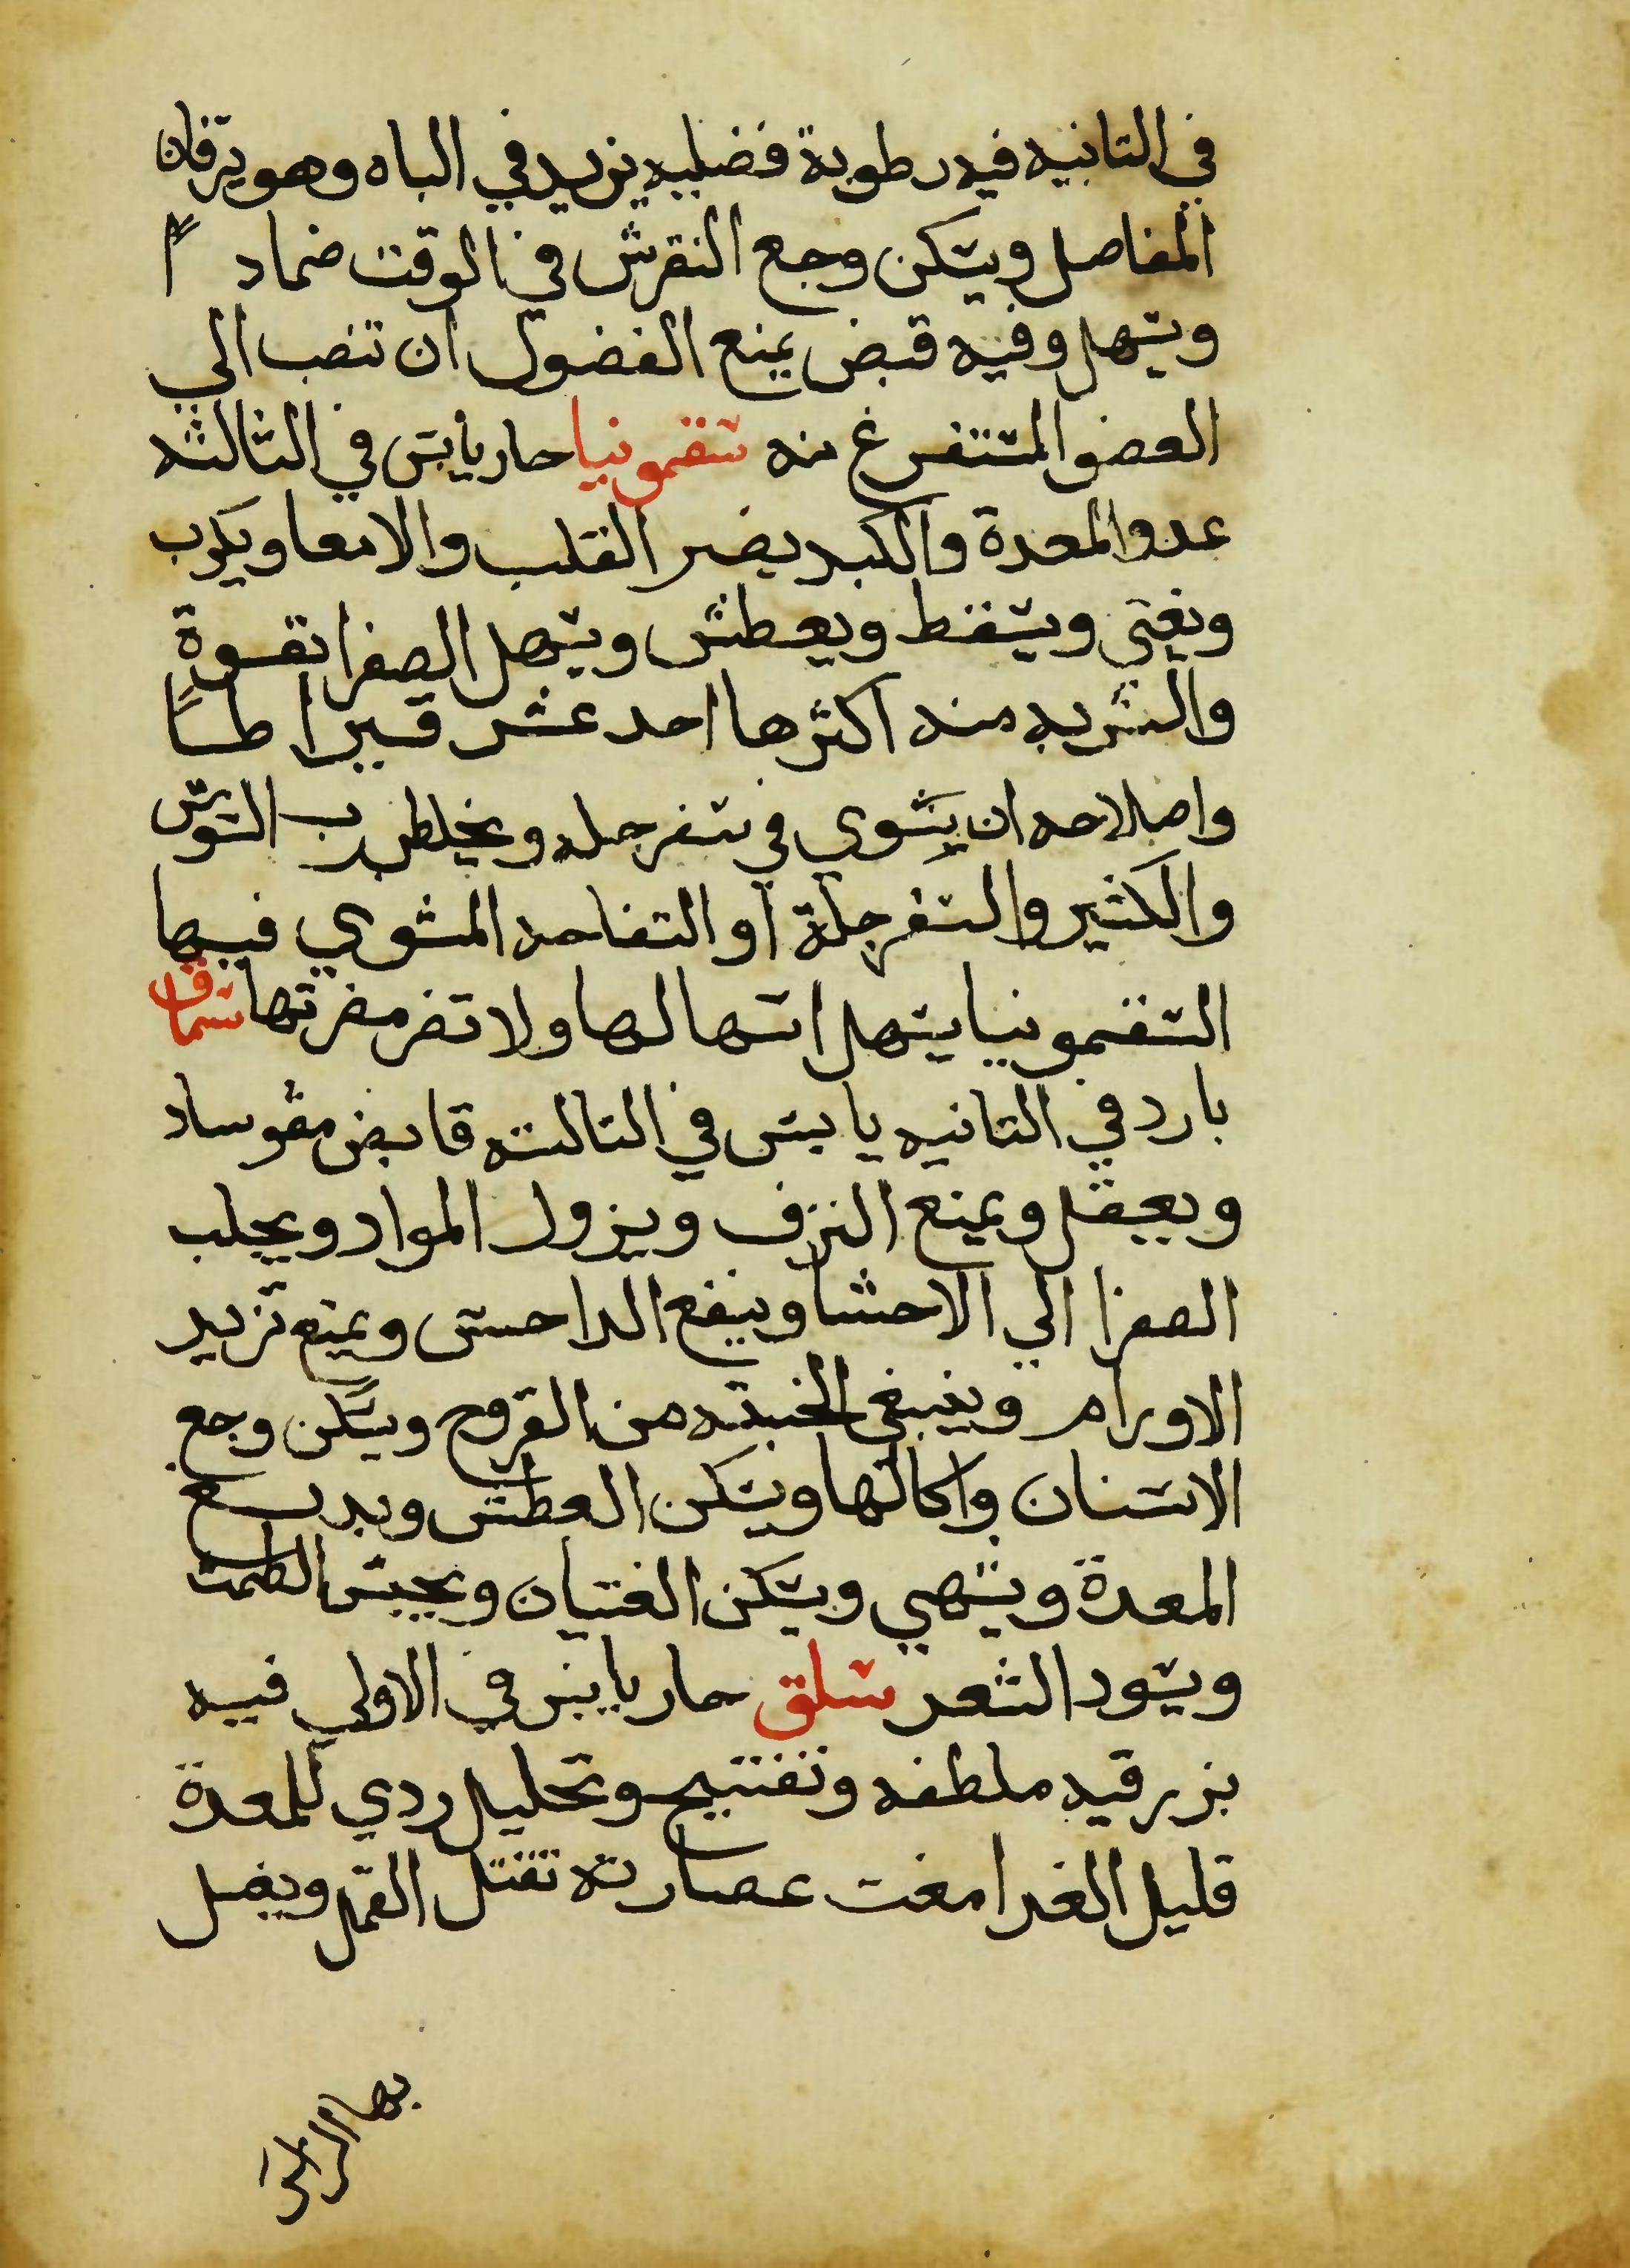 في التانيه فيه رطوبة فضليه يزيد في الباه وهو ترفان
المفاصل ويسكن وجع النقرس في الوقت ضمادًا
ويسهل وفيه قبض يمنع الفضول ان تنصب الي
العضو المستفرغ منه سقمونيا حار يأبس في الثالثه
عدو المعدة والكبد يضر القلب والامعا ويكرب
ويغتي ويسقط ويعطش ويسهل الصفرا بقوة
والشربه منه اكثرها احد عشر قيراطًا
واصلاحه ان يشوي في سفرجله ويخلط برب السوس
والكثير والسفرجلة أو التفاحه المشوي فيها
السقمونيا يسهل اسهالها ولا تضر مضرتها سماق
بارد في التانيه يابس في التالته قابض مقو ساد
ويعقل ويمنع النزف ويزول المواد ويجلب
الصفرا الي الاحشا وينفع الداحس ويمنع تزيد
الاورام وينبغي الخبيته من القروح ويسكن وجع
الاسنان واكالها ويسكن العطش ويدبغ
المعدة ويشهي ويسكن الغتيان ويحبس الطمت
ويسود الشعر سلق حار يابس في الاولي فيه
بزرقيه ملطفه وتفتيح وتحليل ردي للمعدة
قليل الغدا مغت عصارته تقتل القمل ويغسل
بها الراس